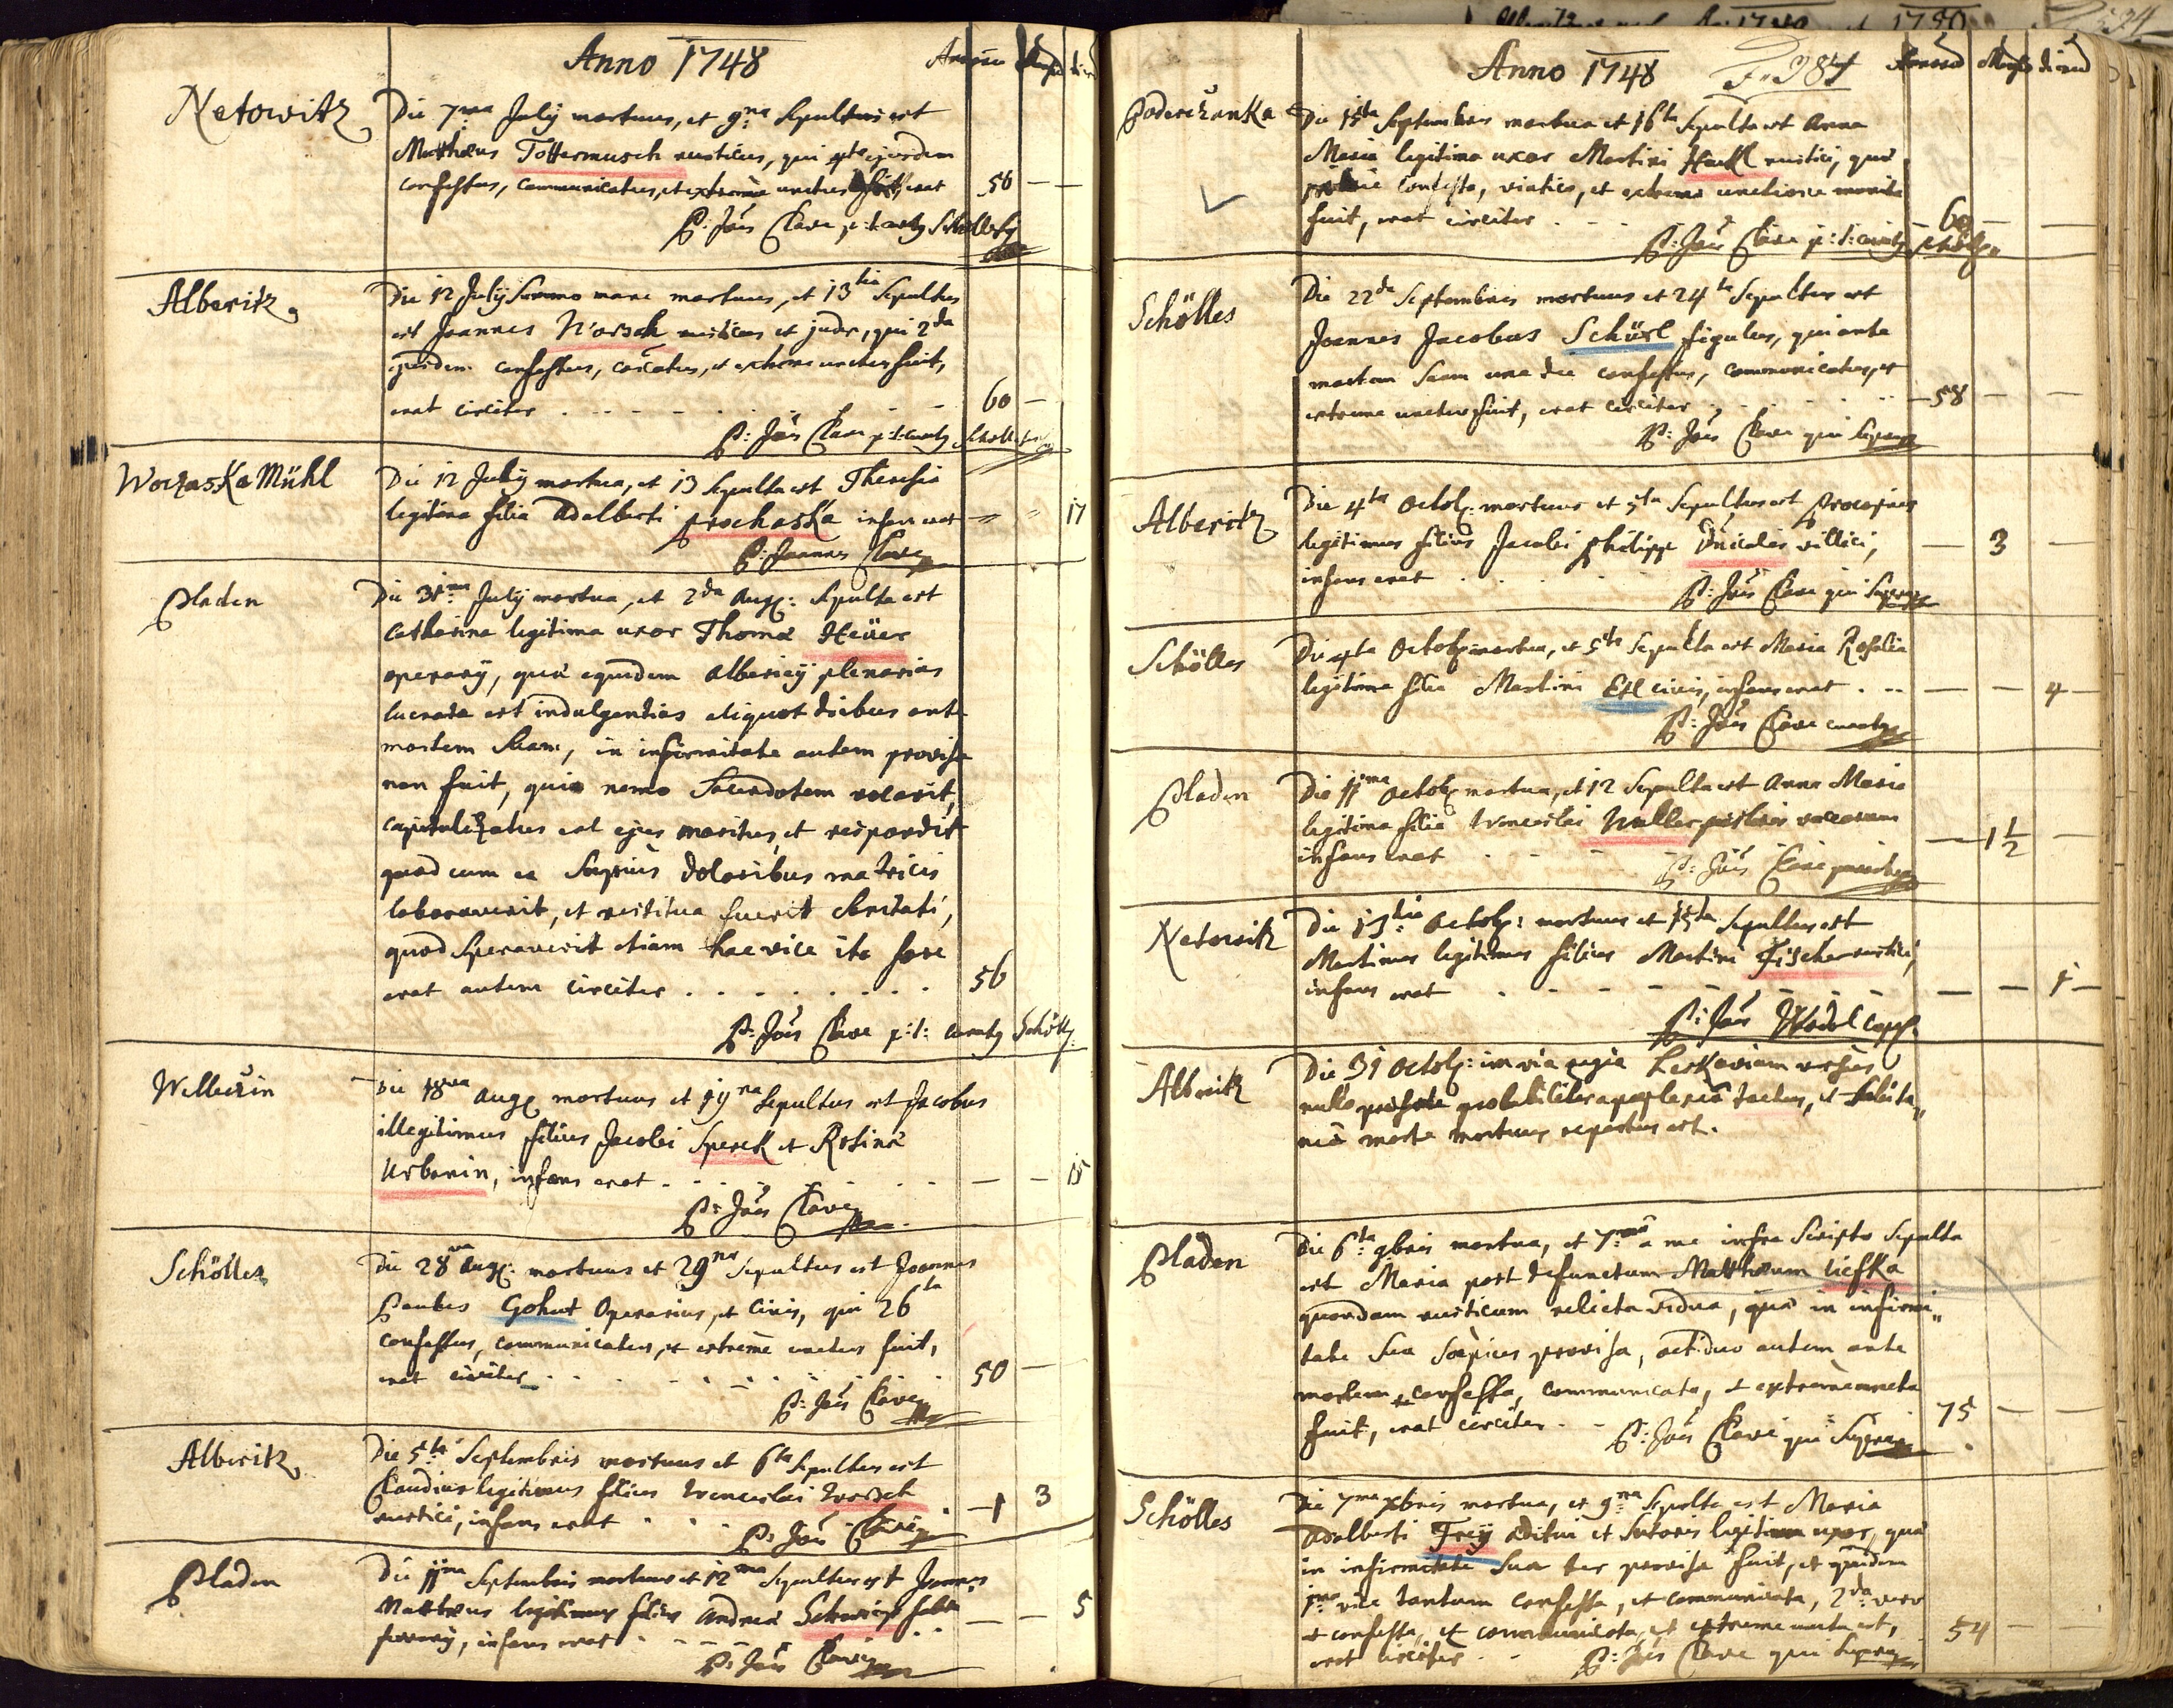 Anno 1748
Netowitz
Die 7ma July mortuus, et 9na Sepultus est
Matthæus Tottermusch rusticus, qui ejusdem
confessus, communicatus, et extreme unctus fuit, erat 56 — —
P: Jōes Clave p:t: curatq Schöllesy
Alberitz
Die 12 July Summo mane mortuus, et 13tia Sepultus
est Joannes Worsch rusticus et judex, qui 2da
ejusdem confessus, coicatus, et extreme unctus fuit,
erat circiter . - - - 60 —
P: Jōes Clave p:t: curatq
WoczasKa Mühl
Die 12 July mortua, et 13 Sepulta est Theresia
legitima filia Adalberti ProchasKa infans erat 17
P: Joannes Clave
Pladen
Die 31ma July mortua, et 2da Aug: Sepulta est
Catharina legitima uxor Thomæ Heüer
operarÿ, quæ equidem Albericÿ plenarias
lucrata est indulgentias aliquot diebus ante
mortem Suam, in infirmitate autem provisa
non fuit, quia nemo Sacerdotem vocavit,
capitulizatus est ejus maritus, et respondit
quod cum ea Sæpius doloribus matricis
laboraverit, et restituta fuerit Sanitati,
quod Speraverit etiam hac vice ita fore
erat autem circiter . . . . . . . . . 56
P: Jōes Clave p:t: curatq Schöll
Willeczin
Die 18va Aug mortuus et 19na Sepultus est Jacobus
illegitimus filius Jacobi Sperck et Rosinæ
Urbanin, infans erat - - - — — 15
P: Jōes Clave
Schölles
Die 28va Aug: mortuus et 29na Sepultus est Joannes
Paulus Gohut Operarius, et Civis, qui 26ta
confessus, communicatus, et extreme unctus fuit,
erat circiter - - - 50 —
P: Jōes Clave
Alberitz
Die 5ta Septembris mortuus et 6ta Sepultus est
Claudius legitimus filius Wenceslai Worsch
rustici, infans erat . . . — 1 3
P: Jōes Clave
Pladen
Die 11ma Septembris mortuus et 12ma Sepultus est Joannes
Matthæus legitimus filius Andreæ
infans erat - - - — — 5
P: Jōes Clave
Anno 1748
PoderszanKa
Die 15ta Septembris mortua et 16ta Sepulta est Anna
Maria legitima uxor Martini Hackl rustici, quæ
confessa, viatico, et extrema unctione munita
fuit, erat circiter . - - 60 —
P: Jōes Clave p:t: curatq
Schölles
Die 22da Septembris mortuus et 24ta Sepultus est
Joannes Jacobus Schürl figulus, qui ante
mortem Suam una die confessus, communicatus, et
extreme unctus fuit, erat circiter . - - — 58 — —
P: Jōes Clave qui Supra
Alberitz
Die 4ta Octob: mortuus et 5ta Sepultus est Procopius
legitimus filius Jacobi Philippi villici,
infans erat . . . . — 3 —
P: Jōes Clave qui Supra
Schölles
Die 4ta Octob mortua, et 5ta Sepulta est Maria Rosalia
legitima filia Martini Etl civis, infans erat . - - — — 4 —
P: Jōes Clave curatq
Pladen
Die 11ma Octob mortua, et 12 Sepulta est Anna Maria
legitima filia Wenceslai Muller pastoris vaccarum
infans erat - - - — 1 1/2 —
P: Jōes Clave
Netowitz
Die 13tia Octob: mortuus et 15ta Sepultus est
Martinus legitimus filius Martini Fischer rustici,
infans erat - - - — — 1 —
P: Jōes Wodol Capl.
Albritz
Die 31 Octob: in via regia versus
nullo probabiliter apoplexia tactus, et
morte mortuus repertus est.
Pladen
Die 6ta 9bris mortua, et 7ma a me infra Scripto Sepulta
est Maria post defunctum Matthæum LiefKa
quondam rusticum relicta vidua, quæ in infirmi„
tate Sua Sæpius provisa, octiduo autem ante
mortem confessa, communicata, et extreme uncta
fuit, erat circiter - - 75 — —
P: Jōes Clave qui Supra
Schölles
Die 7ma Xbris mortua, et 9na Sepulta est Maria
Adalberti Freÿ Æditui et Sutoris legitima uxor, quæ
in infirmitate Sua ter provisa fuit, et quidem
1ma vice tantum confessa, et communicata, 2da vero
et confessa, et communicata, et extreme uncta est,
erat circiter - - 54 — —
P: Jōes Clave qui Supra